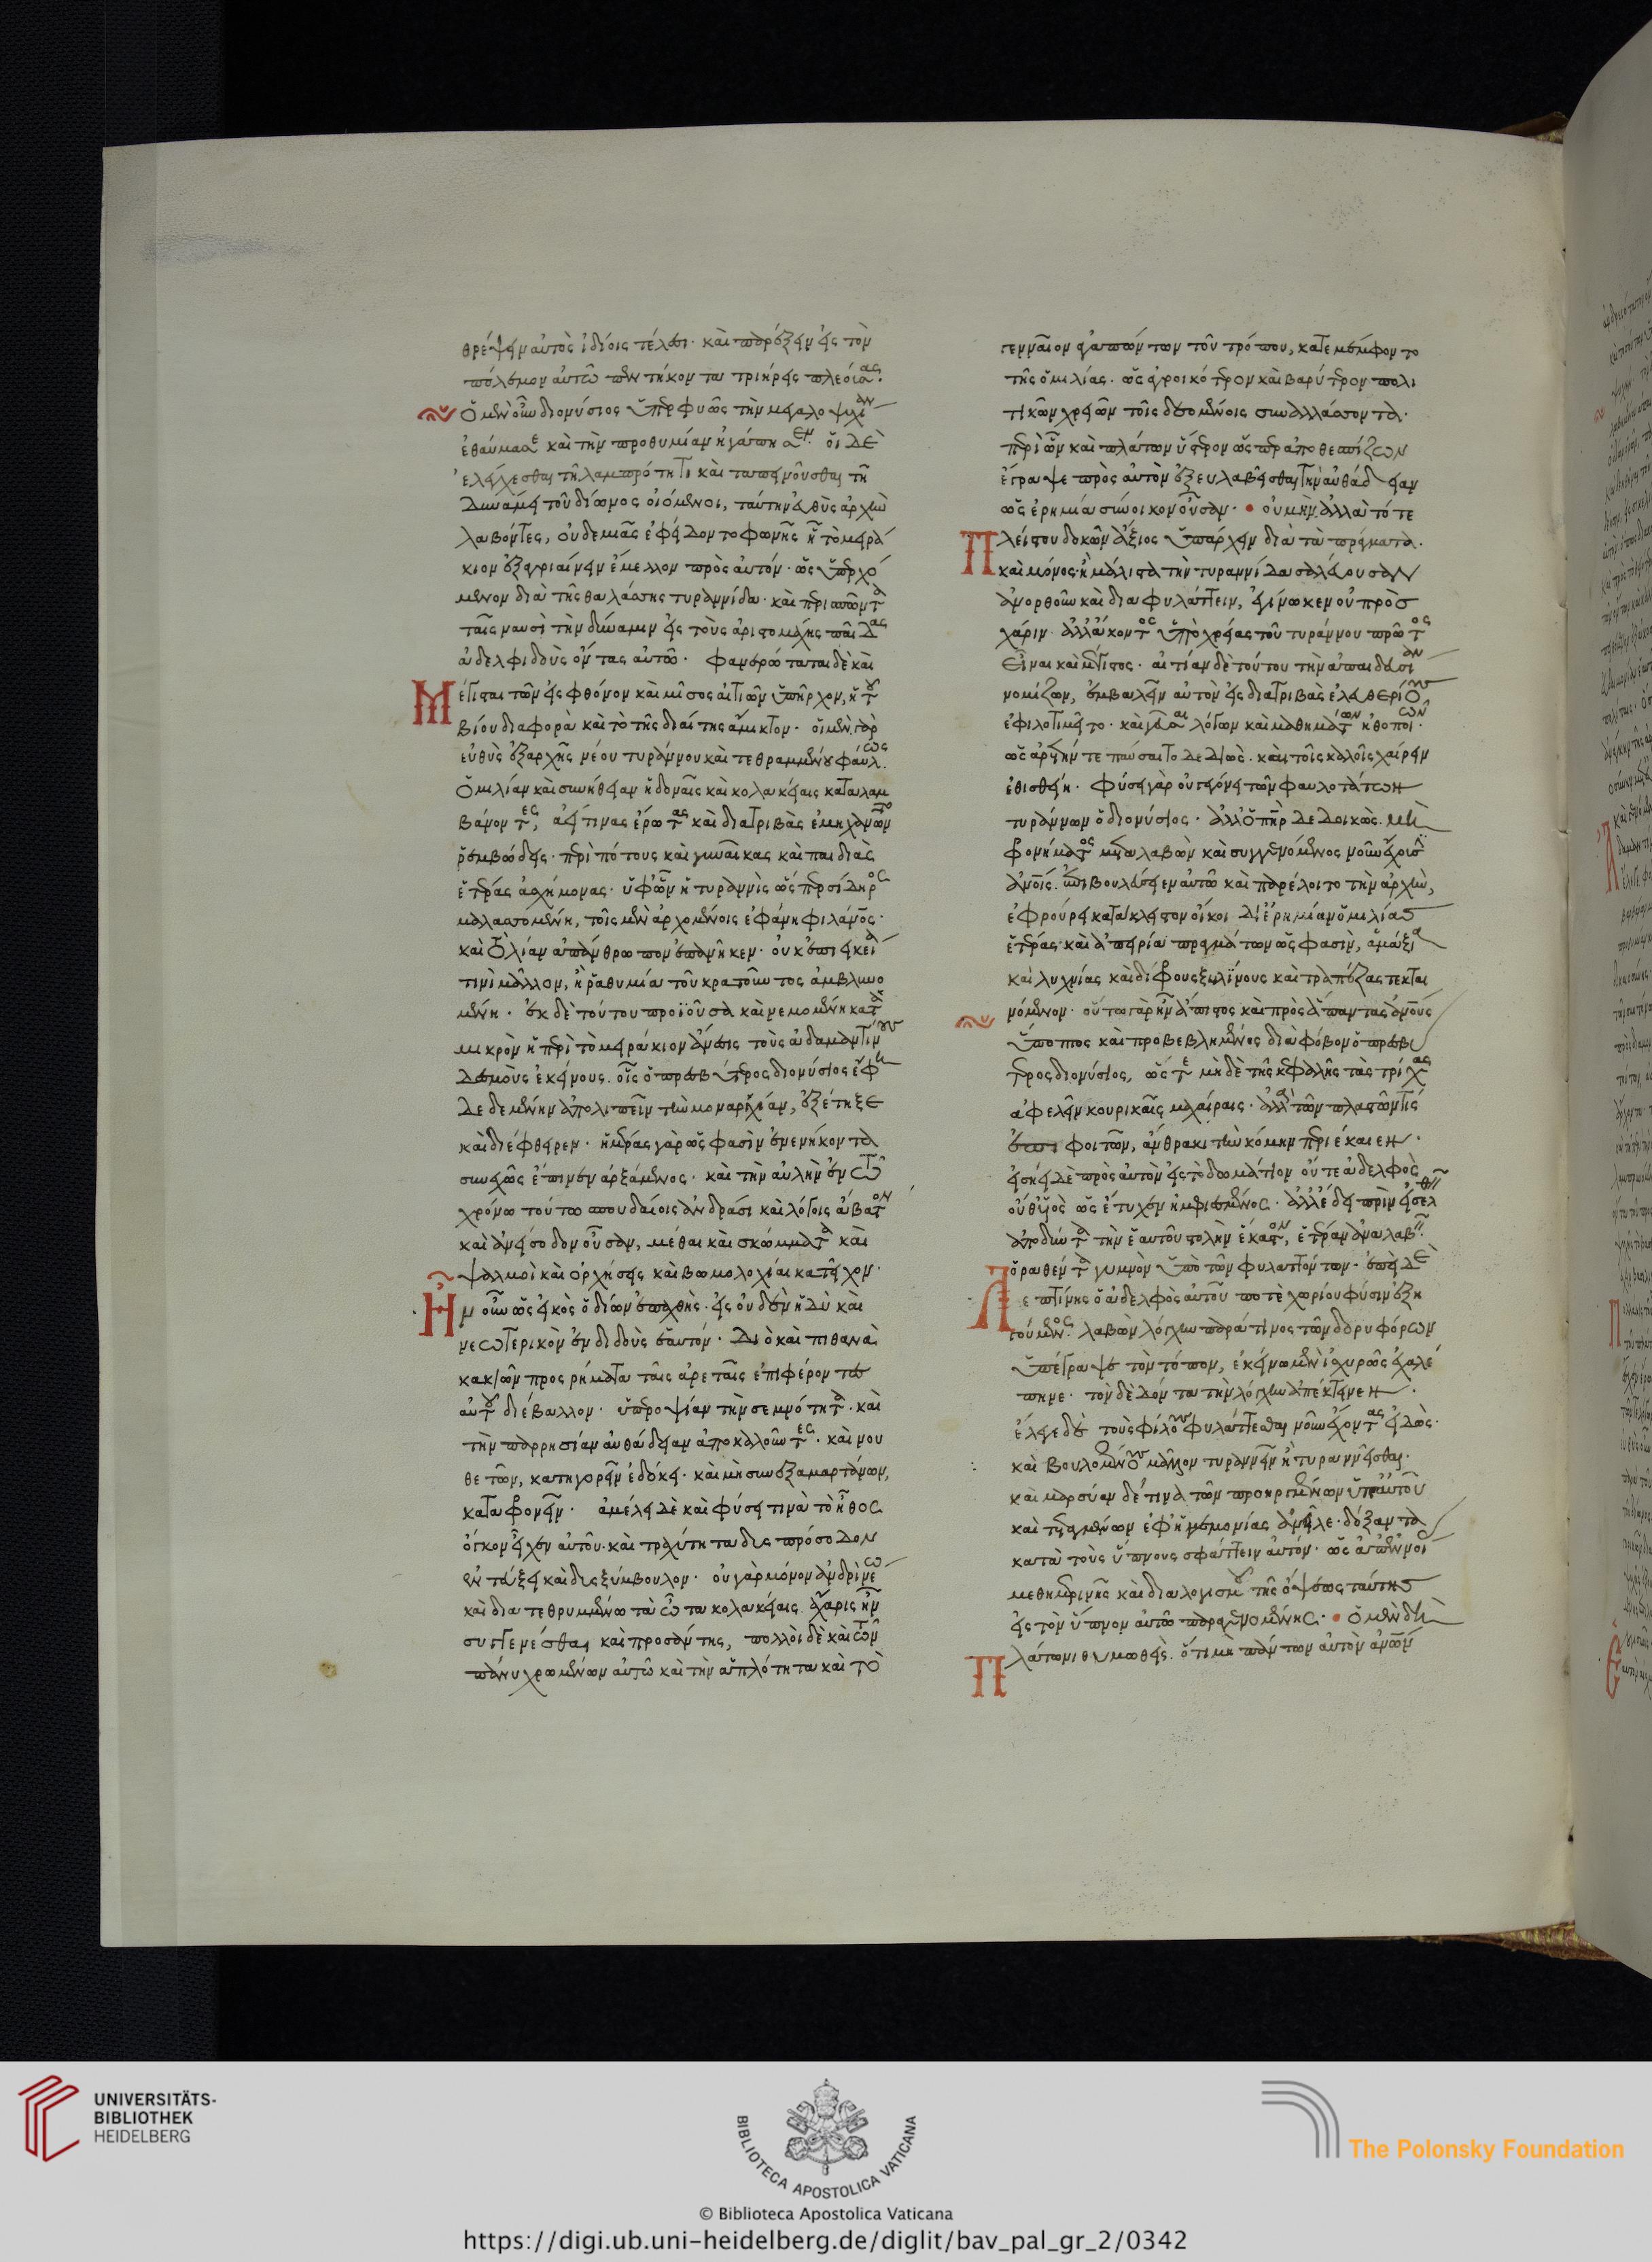 θρέψειν αὐτὸς ἰδίοις τέλεσι· καὶ παρέξειν εἰς τὸν
πόλεμον αὐτῷ πεντήκοντα τριήρεις πλεούσας·
Ὁ μὲν οὖν διονύσιος ὑπερφυῶς τὴν μεγαλοψυχίαν
ἐθαύμασε καὶ τὴν προθυμίαν ἠγάπησεν· οἱ δὲ
ἐλέγχεσθαι τῇ λαμπρότητι καὶ ταπεινοῦσθαι τῇ
δυνάμει τοῦ δίωνος οἰόμενοι, ταύτην εὐθὺς ἀρχὴν
λαβόντες, οὐδεμιᾶς ἐφείδοντο φωνῆς ᾗ τὸ μειρά
κιον ἐξαγριαίνειν ἔμελλον πρὸς αὐτόν· ὡς ὑπερχό
μενον διὰ τῆς θαλάσσης τυραννίδα· καὶ περισπῶντα
ταῖς ναυσὶ τὴν δύναμιν εἰς τοὺς ἀριστομάχης παῖδας
ἀδελφιδοῦς ὄντας αὐτῷ· Φανερώταται δὲ καὶ
Μέγισται τῶν εἰς φθόνον καὶ μῖσος αἰτιῶν ὑπῆρχον, ἡ τοῦ
βίου διαφορὰ καὶ τὸ τῆς διαίτης ἄμικτον· οἱ μὲν γὰρ
εὐθὺς ἐξ ἀρχῆς νέου τυράννου καὶ τεθραμμένου φαύλως·
Ὁμιλίαν καὶ συνήθειαν ἡδοναῖς καὶ κολακείαις καταλαμ
βάνοντες, ἀεί τινας ἔρωτας καὶ διατριβὰς ἐμηχανῶντο
ῥεμβώδεις· περὶ πότους καὶ γυναῖκας καὶ παιδιὰς
ἑτέρας ἀσχήμονας· ὑφ' ὧν ἡ τυραννὶς ὥσπερ σίδηρος
μαλασσομένη, τοῖς μὲν ἀρχομένοις ἐφάνη φιλάνθρωπος·
καὶ τὸ λίαν ἀπάνθρωπον ἐπανῆκεν· οὐκ ἐπιεικείᾳ
τινὶ μᾶλλον, ἢ ῥαθυμίᾳ τοῦ κρατοῦντος ἀμβλυνο
μένη· ἐκ δὲ τούτου προϊοῦσα καὶ νεμομένη κατὰ
μικρὸν ἡ περὶ τὸ μειράκιον ἄνεσις τοὺς ἀδαμαντίνους
Δεσμοὺς ἐκείνους· οἷς ὁ πρεσβύτερος διονύσιος ἔφη
Δεδεμένην ἀπολιπεῖν τὴν μοναρχίαν, ἐξέτηξε
καὶ διέφθειρεν· ἡμέρας γὰρ ὥς φασιν ἐνενήκοντα
συνεχῶς ἔπινεν ἀρξάμενος· καὶ τὴν αὐλὴν ἐν τῷ
χρόνῳ τούτῳ σπουδαίοις ἀνδράσι καὶ λόγοις ἄβατον
καὶ ἀνείσοδον οὖσαν, μέθαι καὶ σκώμματα καὶ
ψαλμοὶ καὶ ὀρχήσεις καὶ βωμολοχίαι κατεῖχον·
Ἦν οὖν ὡς εἰκὸς ὁ δίων ἐπαχθὴς· εἰς οὐδὲν ἡδὺ καὶ
νεωτερικὸν ἐνδιδοὺς ἑαυτόν· Διὸ καὶ πιθανὰ
κακιῶν προσρήματα ταῖς ἀρεταῖς ἐπιφέροντες
αὐτοῦ διέβαλλον· ὑπεροψίαν τὴν σεμνότητα· καὶ
τὴν παρρησίαν αὐθάδειαν ἀποκαλοῦντες· καὶ νου
θετῶν, κατηγορεῖν ἐδόκει· καὶ μὴ συνεξαμαρτάνων,
καταφρονεῖν· ἀμέλει δὲ καὶ φύσει τινὰ τὸ ἦθος
ὄγκον εἶχεν αὐτοῦ· καὶ τραχύτητα δυσπρόσοδον
ἐντεύξει καὶ δυσξύμβουλον· οὐ γὰρ μόνον ἀνδρὶ νέῳ
καὶ διατεθρυμμένῳ τὰ ὦτα κολακείαις ἄχαρις ἦν
συγγενέσθαι καὶ προσάντης, πολλοὶ δὲ καὶ τῶν
πάνυ χρωμένων αὐτῷ καὶ τὴν ἁπλότητα καὶ τὸ
γενναῖον ἀγαπώντων τοῦ τρόπου, κατεμέμφοντο
τῆς ὁμιλίας· ὡς ἀγροικότερον καὶ βαρύτερον πολι
τικῶν χρειῶν τοῖς δεομένοις συναλλάσσοντα·
περὶ ὧν καὶ πλάτων ὕστερον ὥσπερ ἀποθεσπίζων
ἔγραψε πρὸς αὐτὸν ἐξευλαβεῖσθαι τὴν αὐθάδειαν
ὡς ἐρημίᾳ συνοικονοῦσαν· οὐ μὴν ἀλλὰ τότε
Πλείστου δοκῶν ἄξιος ὑπάρχειν διὰ τὰ πράγματα·
καὶ μόνος ἢ μάλιστα τὴν τυραννίδα σαλεύουσαν
ἀνορθοῦν καὶ διαφυλάττειν, ἐγίνωσκεν οὐ πρὸς
χάριν· ἀλλ' ἄκοντος ὑπὸ χρείας τοῦ τυράννου πρῶτος
Εἶναι καὶ μέγιστος· αἰτίαν δὲ τούτου τὴν ἀπαιδευσίαν
νομίζων, ἐμβαλεῖν αὐτὸν εἰς διατριβὰς ἐλευθερίους
ἐφιλοτιμεῖτο· καὶ γεῦσαι λόγων καὶ μαθημάτων ἠθοποιῶν·
ὡς ἀρετήν τε παύσαιτο δεδιὼς· καὶ τοῖς καλοῖς χαίρειν
ἐθισθείη· Φύσει γὰρ οὐ γέγονε τῶν φαυλοτάτων
τυράννων ὁ διονύσιος· ἀλλ' ὁ πατὴρ δεδοικὼς· μὴ
φρονήματος μεταλαβὼν καὶ συγγενόμενος νοῦν ἔχουσιν
ἀνθρώποις· ἐπιβουλεύσειεν αὐτῷ καὶ παρέλοιτο τὴν ἀρχὴν,
ἐφρούρει κατάκλειστον οἴκοι δι' ἐρημίαν ὁμιλίας
ἑτέρας· καὶ ἀπειρίᾳ πραγμάτων ὥς φασιν, ἁμάξια
καὶ λυχνίας καὶ δίφρους ξυλίνους καὶ τραπέζας τεκται
νόμενον· οὕτω γὰρ ἦν ἄπιστος καὶ πρὸς ἅπαντας ἀνθρώπους
ὕποπτος καὶ προβεβλημένος διὰ φόβον ὁ πρεσβύ
τερος διονύσιος, ὥστε μηδὲ τῆς κεφαλῆς τὰς τρίχας
ἀφελεῖν κουρικαῖς μαχαίραις· ἀλλὰ τῶν πλαστῶν τις
ἐπιφοιτῶν, ἄνθρακι τὴν κόμην περιέκαιεν·
εἰσῄει δὲ πρὸς αὐτὸν εἰς τὸ δωμάτιον οὔτε ἀδελφὸς
οὔθ' υἱὸς ὡς ἔτυχεν ἠμφιεσμένος· ἀλλ' ἔδει πρὶν εἰσελθεῖν
ἀποδύντα τὴν ἑαυτοῦ στολὴν ἕκαστον, ἑτέραν ἀναλαβεῖν·
ὁραθέντα γυμνὸν ὑπὸ τῶν φυλαττόντων· ἐπεὶ δὲ
Λεπτίνης ὁ ἀδελφὸς αὐτοῦ ποτὲ χωρίου φύσιν ἐξη
γούμενος· λαβὼν λόγχην παρά τινος τῶν δορυφόρων
ὑπέγραψε τὸν τόπον, ἐκείνῳ μὲν ἰσχυρῶς ἐχαλέ
πηνε· τὸν δὲ δόντα τὴν λόγχην ἀπέκτεινεν·
ἔλεγε δὲ τοὺς φίλους φυλάττεσθαι νοῦν ἔχοντας εἰδὼς·
καὶ βουλομένους μᾶλλον τυραννεῖν ἢ τυραννεῖσθαι·
καὶ μαρσύαν δέ τινα τῶν προηγμένων ὑπ' αὐτοῦ
καὶ τεταγμένων ἐφ' ἡγεμονίας ἀνεῖλε· δόξαντα
κατὰ τοὺς ὕπνους σφάττειν αὐτόν· ὡς ἀπ' ἐννοίας
μεθημερινῆς καὶ διαλογισμοῦ τῆς ὄψεως ταύτης
εἰς τὸν ὕπνον αὐτῷ παραγενομένης· Ὁ μὲν δὴ
Πλάτωνι θυμωθεὶς· ὅτι μὴ πάντων αὐτὸν ἀνθρώπων
UNIVERSITÄTS-
BIBLIOTHEK
HEIDELBERG
BIBLIOTECA APOSTOLICA VATICANA
The Polonsky Foundation
© Biblioteca Apostolica Vaticana
https://digi.ub.uni-heidelberg.de/diglit/bav_pal_gr_2/0342